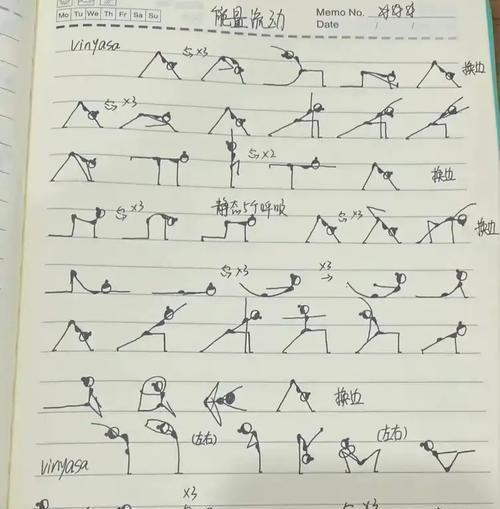 Mo Tu We Th Fr Sa Su
能量流动
Memo No.
Date / /
vinyasa
x3
换边
x3
x2
换边
x3
静态5个呼吸
x3
换边
x3
x3
换边
(左右)
(左右)
vinyasa
x3
x3